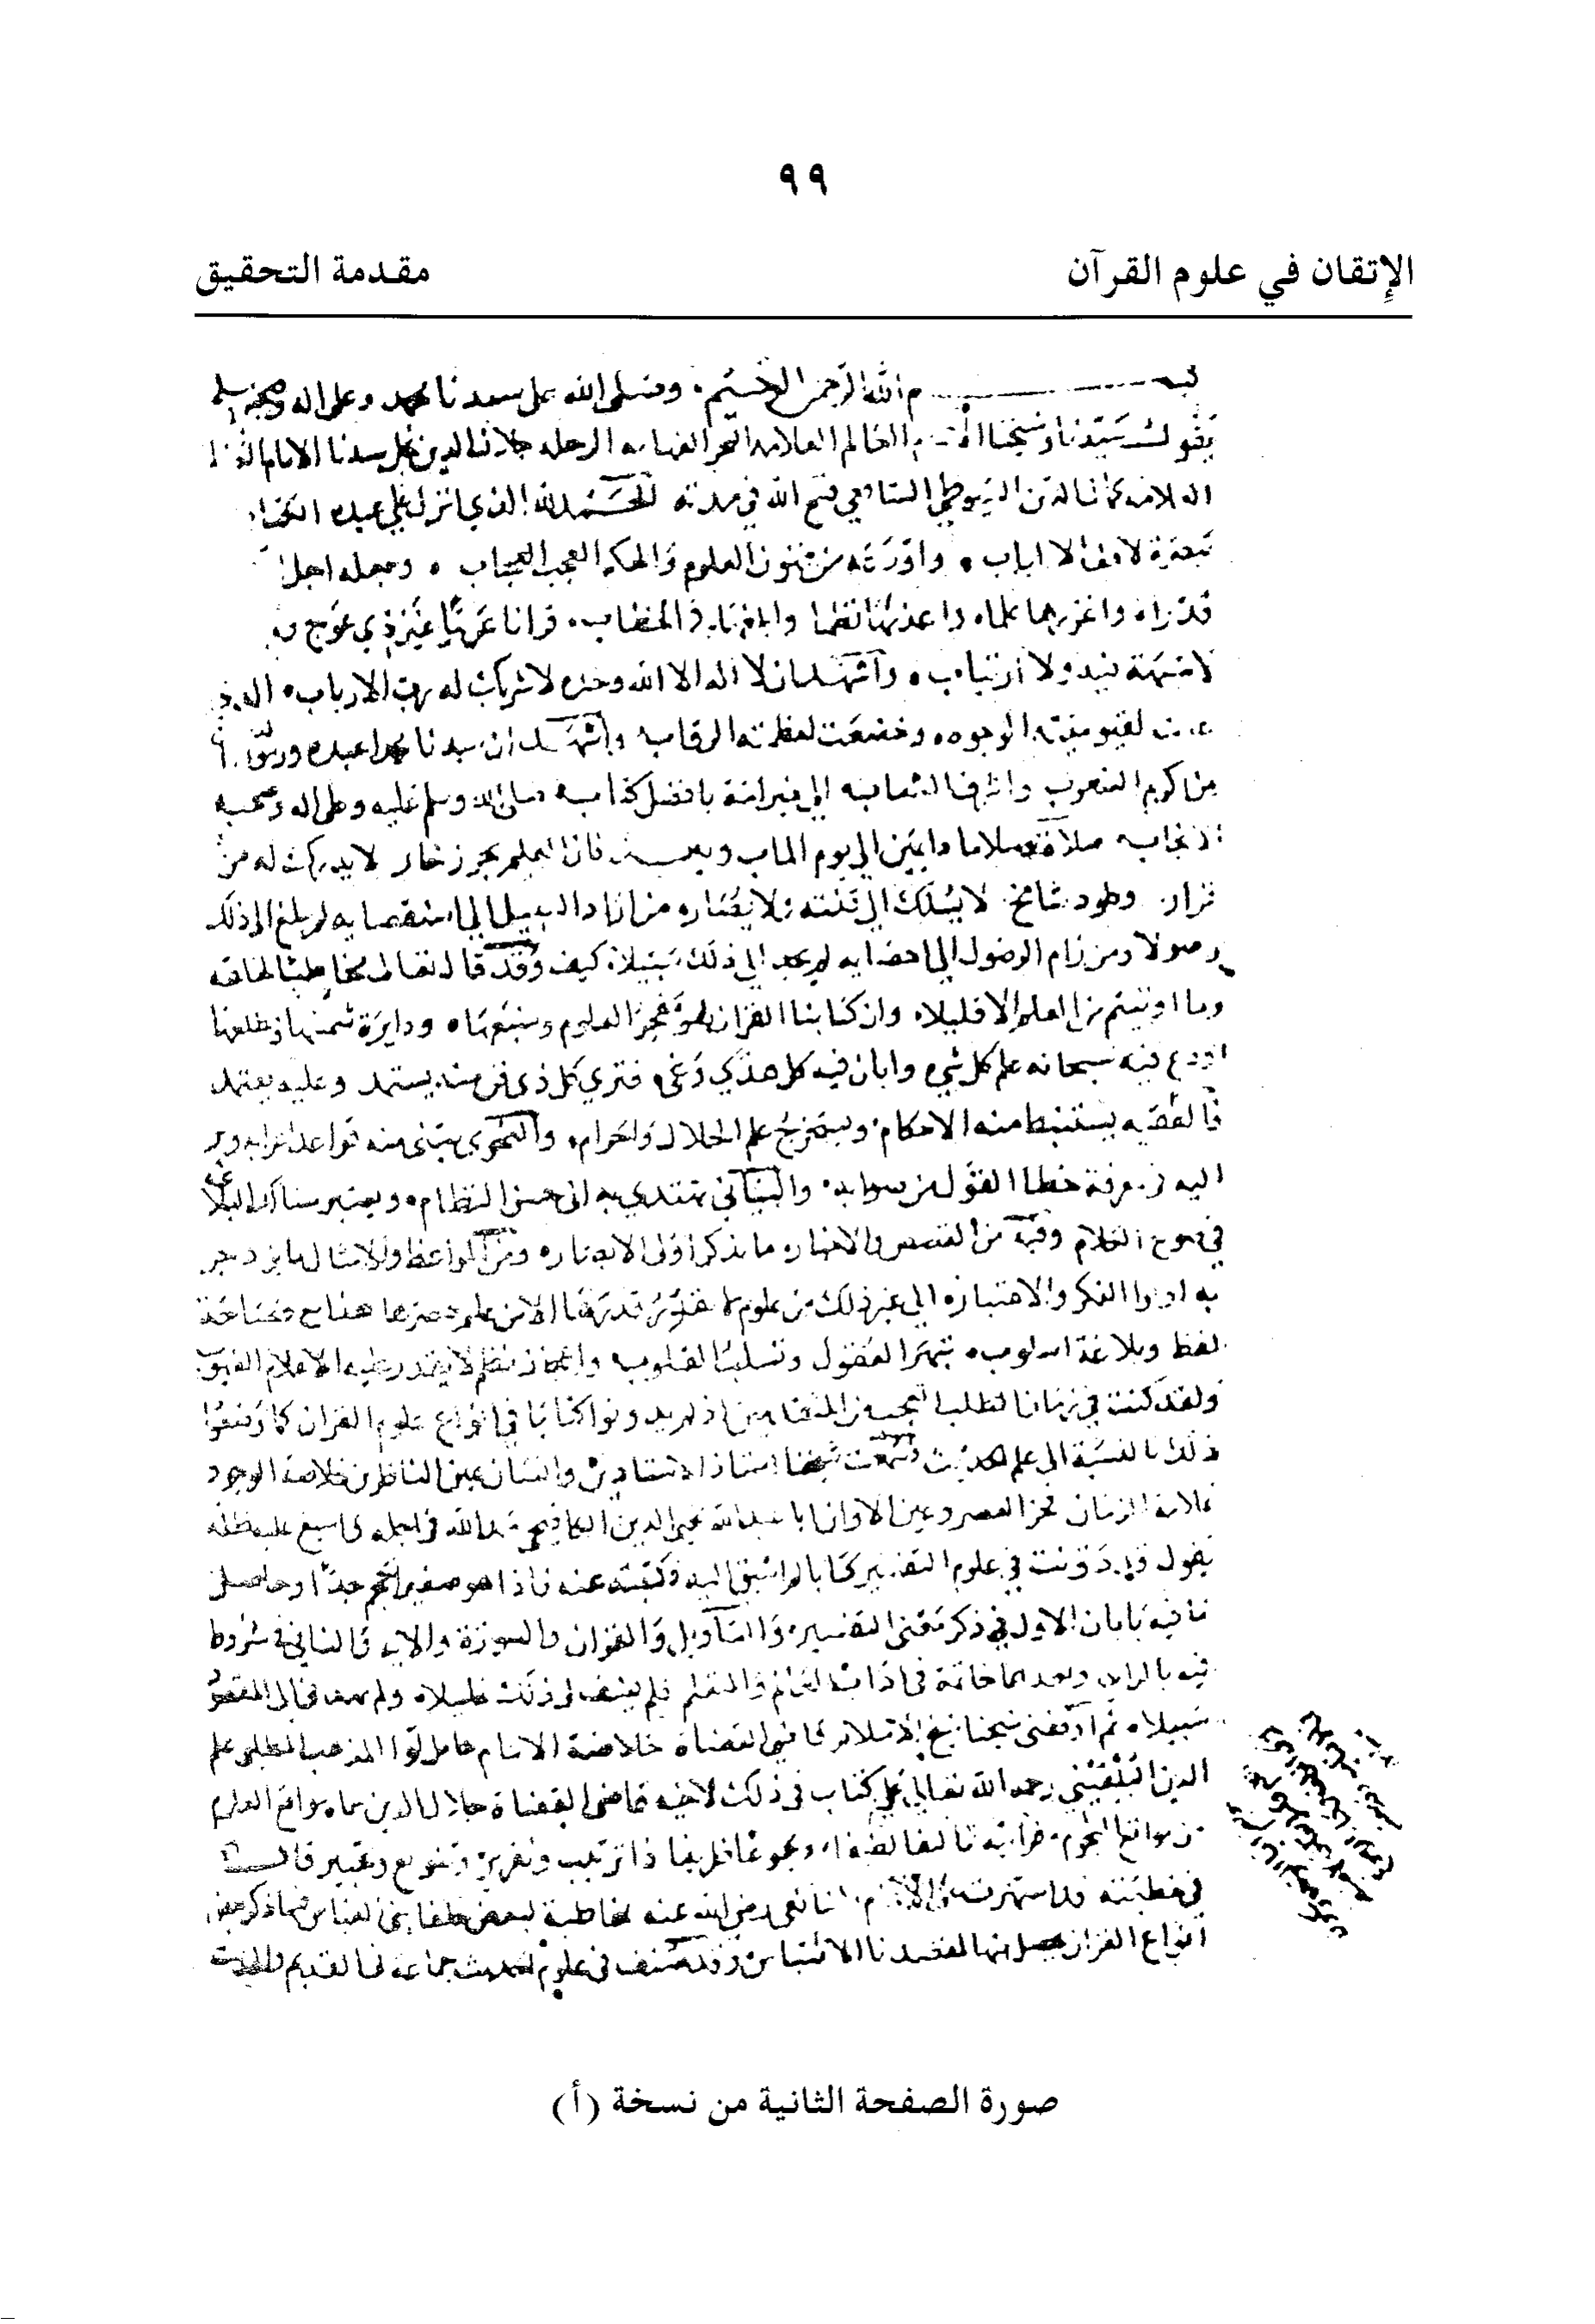 ٩٩
الإتقان في علوم القرآن
مقدمة التحقيق
بسم الله الرحمن الرحيم وصلى الله على سيدنا محمد وعلى اله وصحبه وسلم
يقول سيدنا وشيخنا العالم العلامه البحر الفهامه الرحله جلال الدين نجل سيدنا الامام
العلامه كمال الدين السيوطي الشافعي فسح الله في مدته الحمد لله الذي انزل على عبده الكتاب
تبصرة لاولى الالباب واودعه من فنون العلوم والحكم العجب العجاب وجعله اجل
قدرا واغزرها علما واعذبها نظما وابلغها في الخطاب قرانا عربيا غير ذي عوج
لا شبهة فيه ولا ارتياب واشهد ان لا اله الا الله وحده لا شريك له رب الارباب الذي
عنت لقيوميته الوجوه وخضعت لعظمته الرقاب واشهد ان سيدنا محمدا عبده ورسوله
من اكرم الشعوب واشرف الشعاب الى خير امة بافضل كتاب صلى الله وسلم عليه وعلى اله وصحبه
الانجاب صلاة وسلاما دايمين الى يوم الماب وبعد فان العلم بحر زخار لا يدرك له من
قرار وطود شامخ لا يسلك الى قنته ولا يصار من اراد السبيل الى استقصايه لم يبلغ الى ذلك
وصولا ومن رام الوصول الى احصايه لم يجد الى ذلك سبيلا كيف وقد قال تعالى مخاطبا لخلقه
وما اوتيتم من العلم الا قليلا وان كتابنا القران لهو مفجر العلوم ومنبعها ودايرة شمسها ومطلعها
اودع فيه سبحانه علم كل شيء وابان فيه كل هدي وغي فترى كل ذى فن منه يستمد وعليه يعتمد
فالفقيه يستنبط منه الاحكام ويستخرج علم الحلال والحرام والنحوى يبنى منه قواعد اعرابه
اليه في معرفة خطا القول من صوابه والبياني يهتدي به الى حسن النظام ويعتبر مسالك البلاغة
في صوغ الكلام وفيه من القصص والاخبار ما يذكر اولى الابصار ومن المواعظ والامثال ما يزدجر
به اولوا الفكر والاعتبار الى غير ذلك من علوم لا يقدر قدرها الا من علم حصرها مع فصاحة
لفظ وبلاغة اسلوب تبهر العقول وتسلب القلوب واعجاز نظم لا يقدر عليه الا علام الغيوب
ولقد كنت في زمان الطلب اتعجب من المتقدمين اذ لم يدونوا كتابا في انواع علوم القران كما وضعوا
ذلك بالنسبة الى علم الحديث فسمعت شيخنا استاذ الاستاذين وانسان عين الناظرين خلاصة الوجود
علامة الزمان فخر العصر وعين الاوان ابا عبد الله محيي الدين الكافيجي مد الله في اجله واسبغ عليه ظله
يقول قد دونت في علوم التفسير كتابا لم اسبق اليه فكتبته عنه فاذا هو صغير الحجم جدا وحاصل
ما فيه بابان الاول في ذكر معنى التفسير والتاويل والقران والسورة والاية والثاني في شروط
فيه بالراي وبعدهما خاتمة في اداب العالم والمتعلم فلم يشف لى ذلك غليلا ولم يهدني الى المقصود
سبيلا ثم اوقفنى شيخنا شيخ الاسلام قاضي القضاة خلاصة الانام حامل لوا المذهب المطلبى علم
الدين البلقيني رحمه الله تعالى على كتاب في ذلك لاخيه قاضى القضاة جلال الدين سماه مواقع العلوم
من مواقع النجوم فرايته تاليفا لطيفا ومجموعا ظريفا ذا ترتيب وتقرير وتنويع وتحبير قال
في خطبته قد اشتهرت عن الامام الشافعى رضى الله عنه مخاطبة لبعض خلفا بنى العباس فيها ذكر بعض
انواع القران يحصل منها لمقصدنا الاقتباس وقد صنف في علوم الحديث جماعه في القديم والحديث
صورة الصفحة الثانية من نسخة (أ)